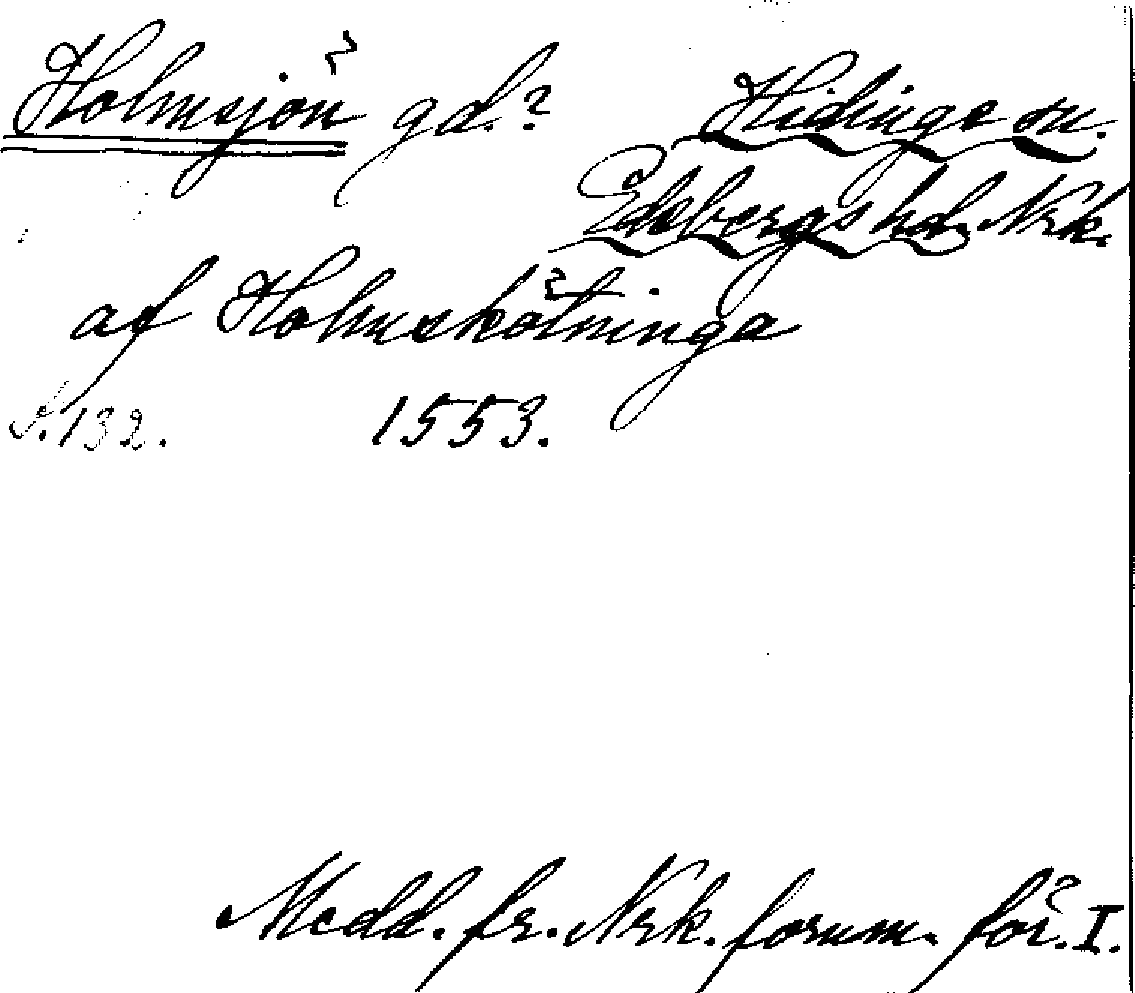 Holmsjön gd.? Hidinge sn.
Edsbergs hd. Nrk.
af Holmskötninga
s. 132. 1553.
Medd. fr. Nrk. fornm. för. I.